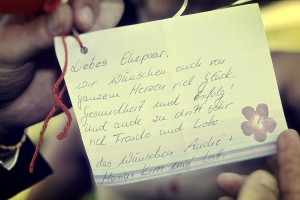 Liebes Ehepaar,
wir wünschen euch von
ganzem Herzen viel Glück,
Gesundheit und Erfolg!
Und auch zu dritt sehr
viel Freude und Liebe.
das wünschen André +